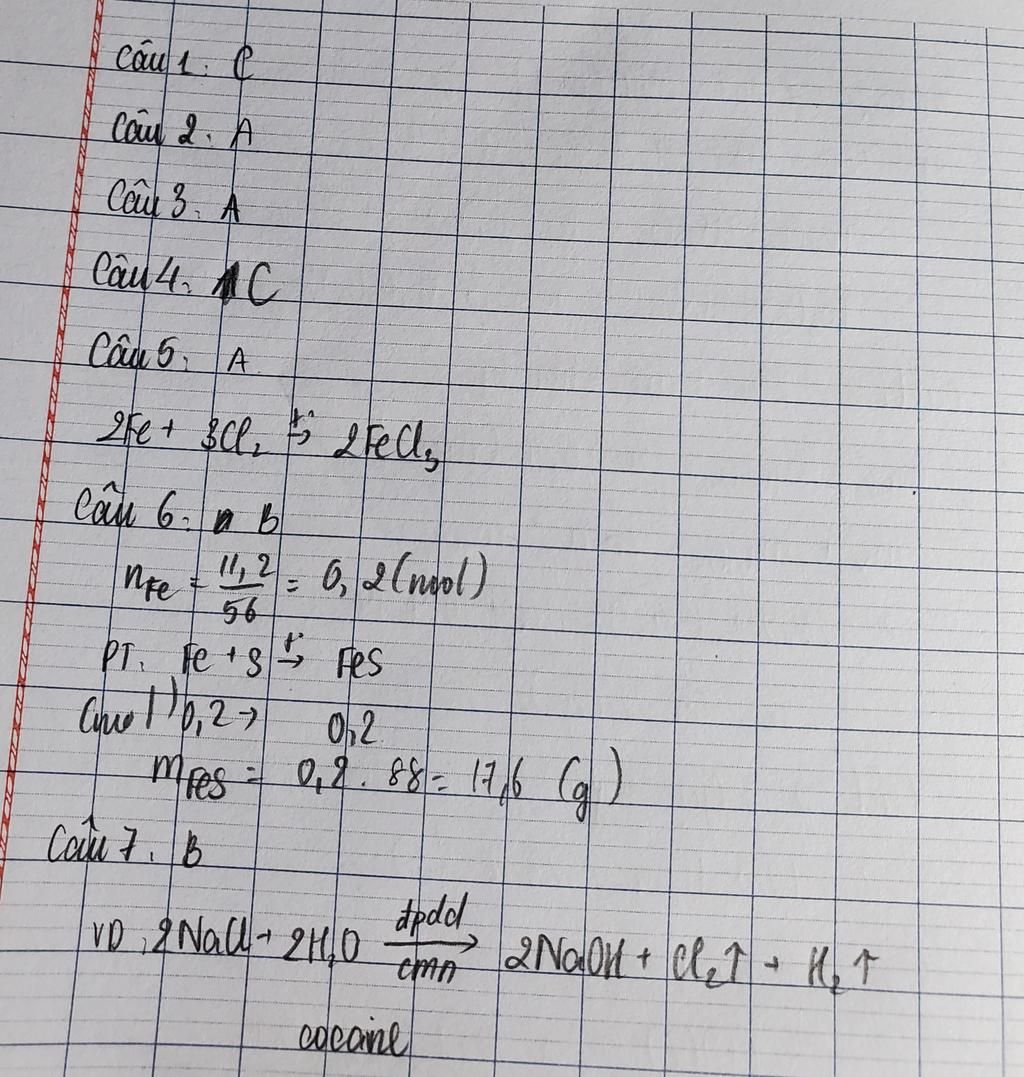 Câu 1. C
Câu 2. A
Câu 3. A
Câu 4. C
Câu 5. A
2Fe + 3Cl₂ t°→ 2FeCl₃
Câu 6. B
nFe = 11,2/56 = 0,2 (mol)
PT. Fe + S t°→ FeS
(mol) 0,2 → 0,2
mFeS = 0,2 . 88 = 17,6 (g)
Câu 7. B
VD. 2NaCl + 2H₂O đpdd/cmn → 2NaOH + Cl₂↑ + H₂↑
cocaine